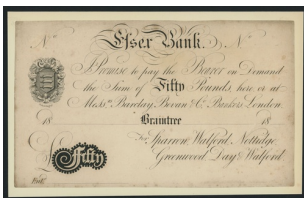 No Essex Bank. No
I Promise to pay the Bearer on Demand
the Sum of Fifty Pounds, here, or at
Messrs. Barclay, Bevan & Co. Bankers London
18 Braintree 18
For Sparrow, Walford, Nottidge,
Greenwood, Day & Walford
£ Fifty
Entd.